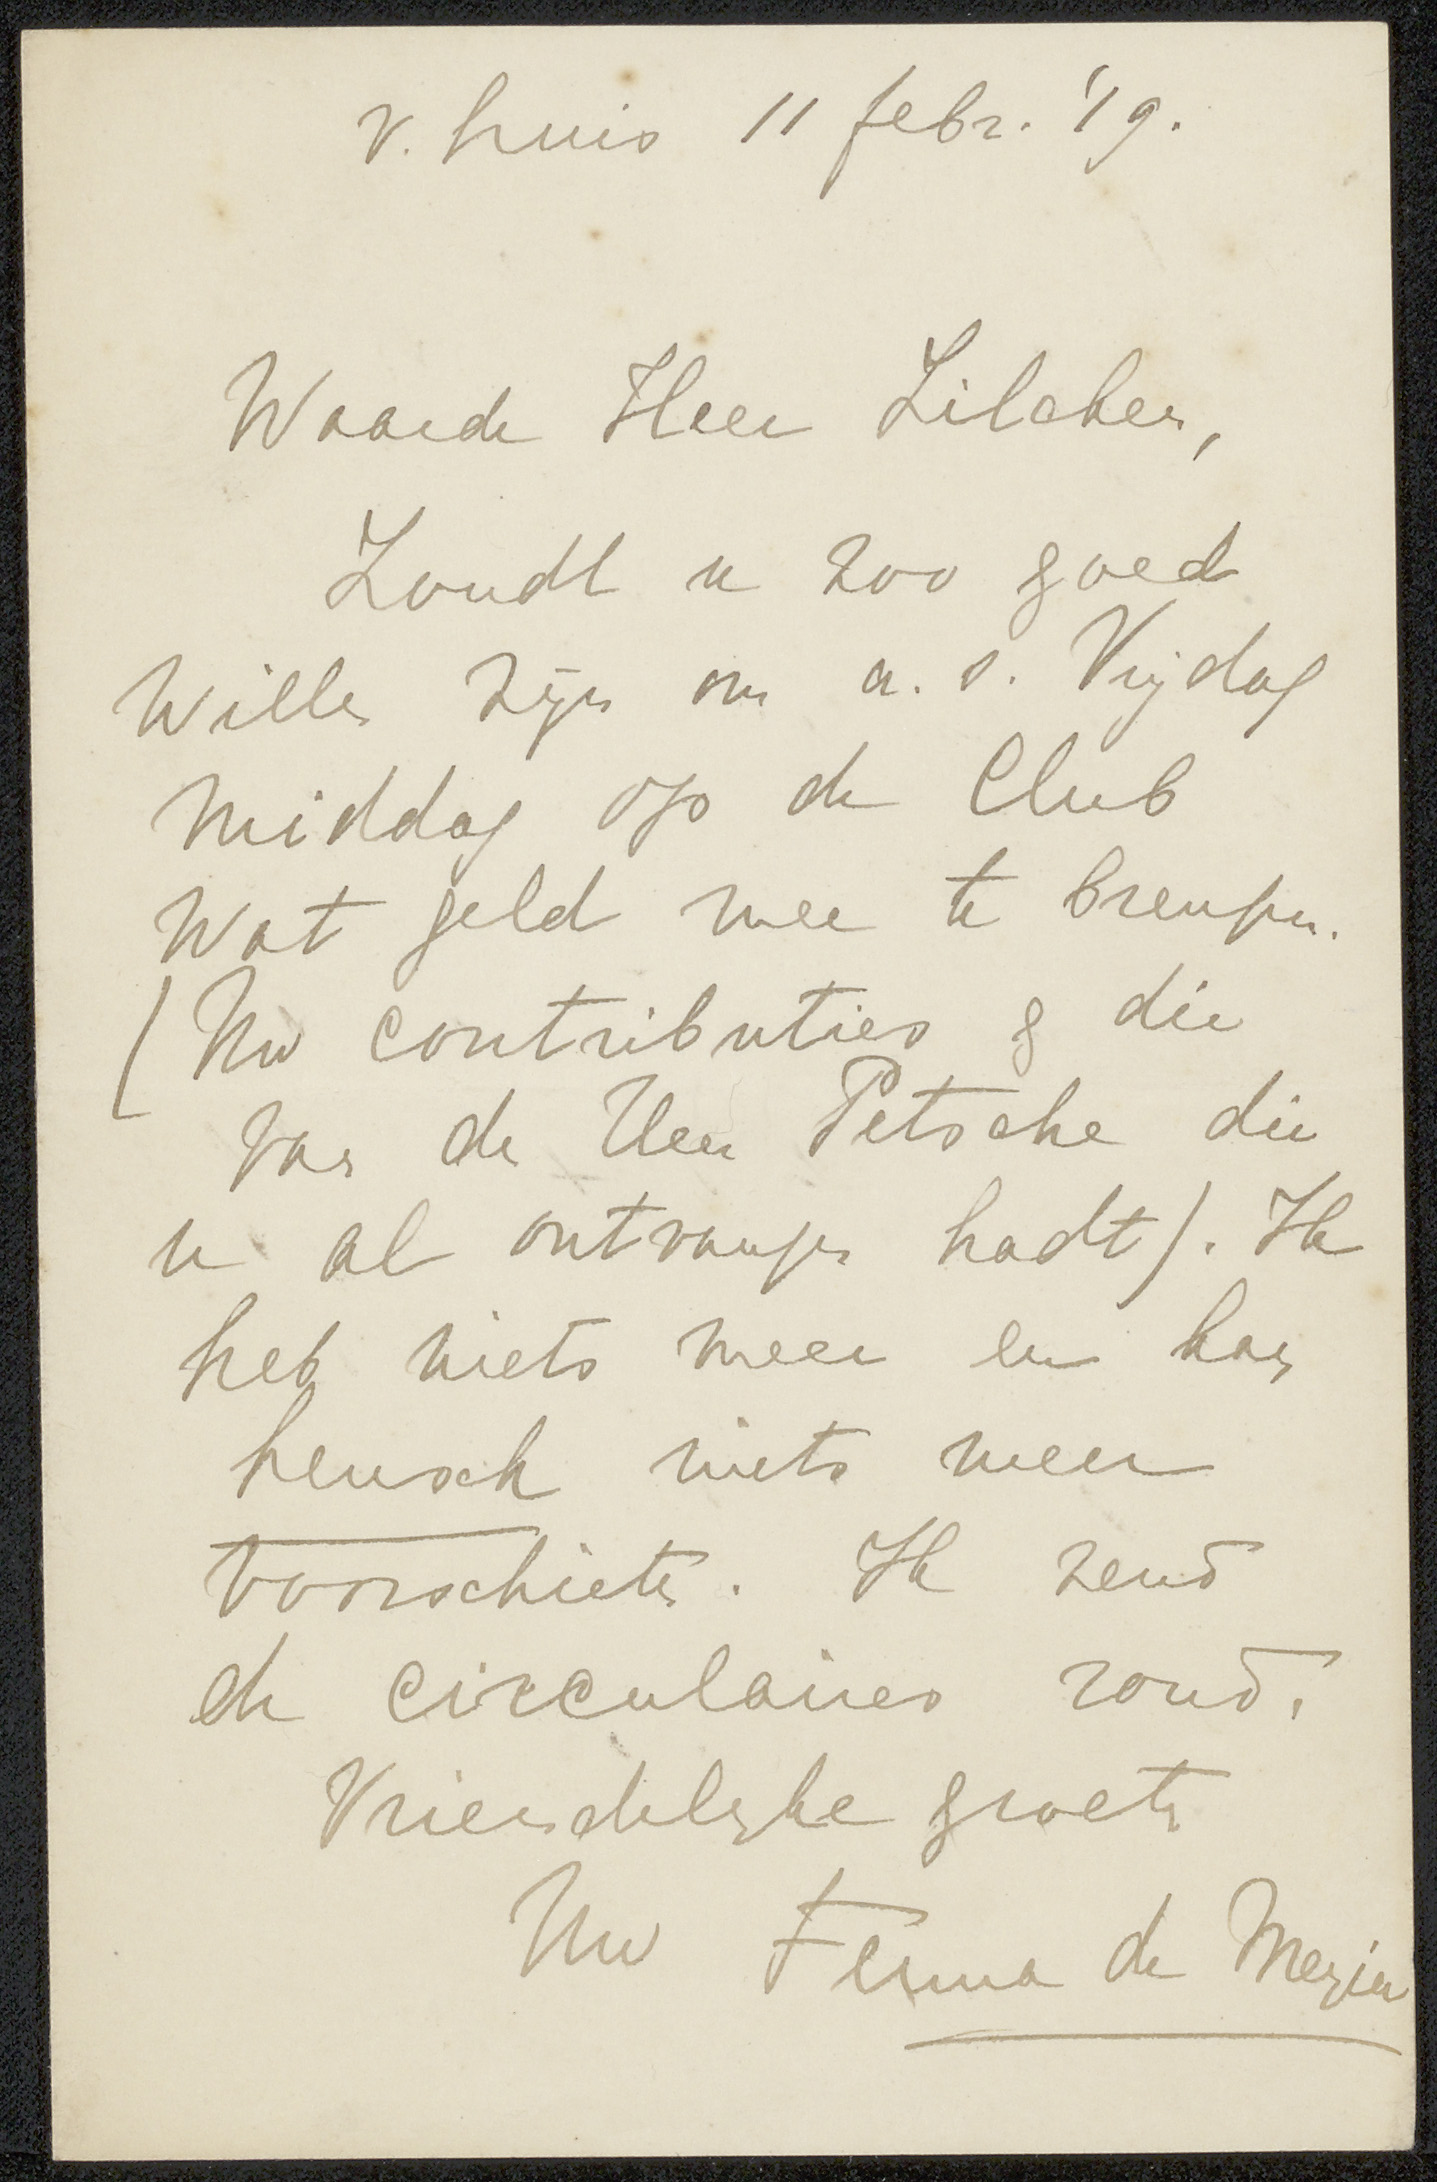 v. huis 11 febr. '19.
Waarde Heer Zilcken,
Zoudt u zoo goed
willen zijn om a. s. Vrijdag
middag op de Club
wat geld mee te brengen.
(Uw contributies & die
van de Heer Petsche die
u al ontvangen hadt). Ik
heb niets meer en kan
heusch niets meer
voorschieten. Ik zend
de circulaires rond.
Vriendelijke groeten
Uw Fenna de Meyier